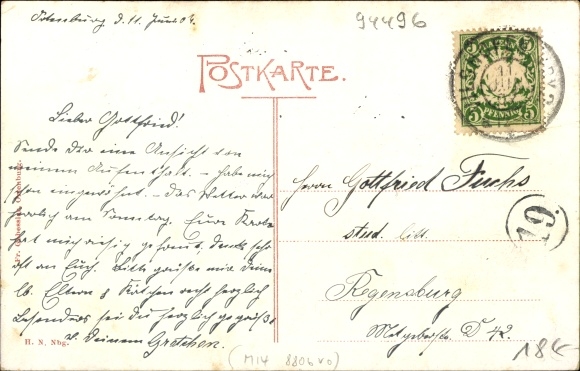 Ortenburg d. 11. Juni 04.
94496
POSTKARTE.
5 5
PFENNIG
Lieber Gottfried!
Sende Dir eine Ansicht von
meinem Aufenthalt. – habe mich
schon eingewöhnt. – Das Wetter war
herrlich am Sonntag. Eure Karte
hat mich riesig gefreut, denke sehr
oft an Euch. Bitte grüße mir Deine
lb. Eltern & recht herzlich
Besonders sei Du herzlich gegrüßt
v. Deinem Gretchen.
Herrn Gottfried Fuchs
stud. litt.
Regensburg
D 42.
19.
H. N. Nbg.
(M14 880b vo)
18€